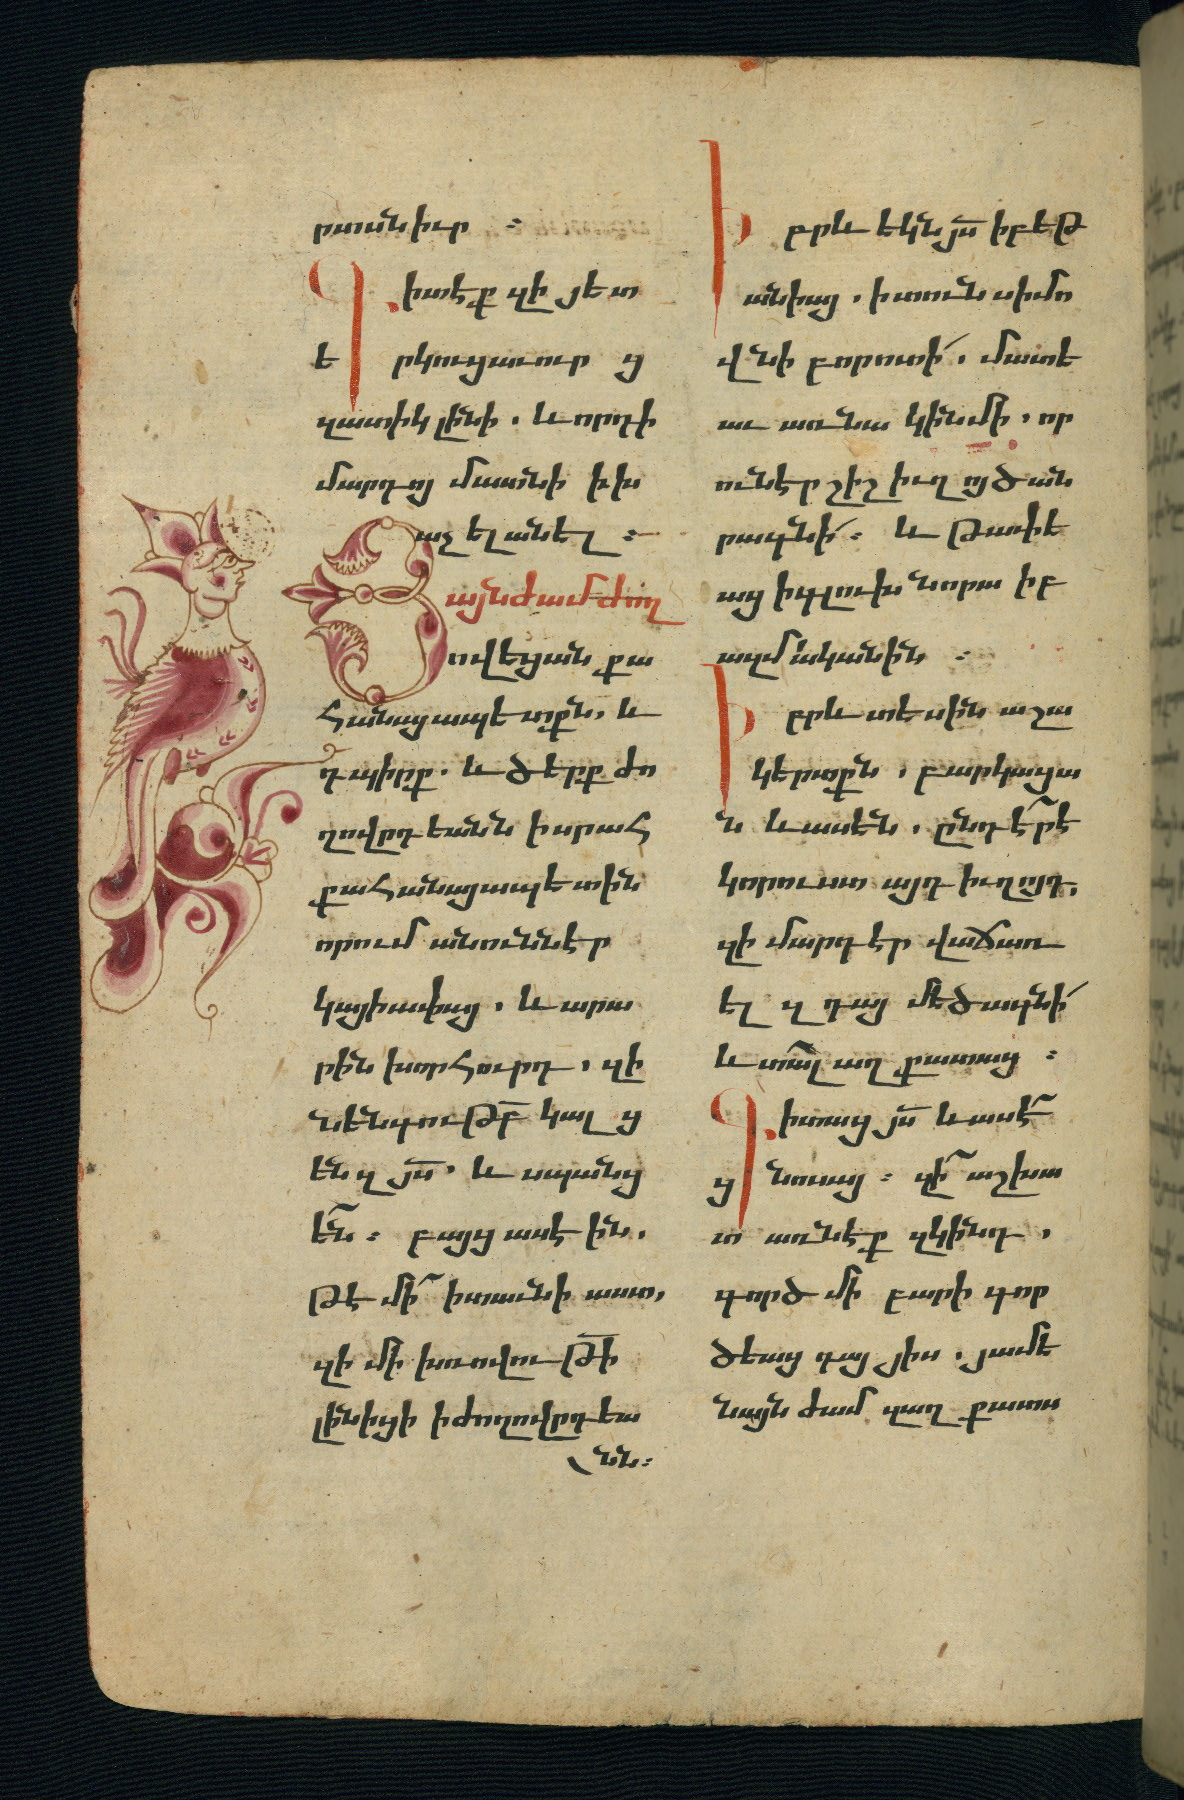 րտսնիւր ։
Գիտէք զի յետ
երկուց աւուր զ
զատիկ լինի . և որդի
մարդոյ մատնի ի խ
աչ ելանել ։
Յայնժամ ժող
ովեցան քա
հանայապետքն, և
դպիրք . և ծերք ժո
ղովրդեանն ի սրահ
քահանայապետին
որում անուն էր
կայիափայ . և արա
րին խորհուրդ , զի
նենգութբ̅ կալց
են զյս̅ . և սպանց
են ։ բայց ասէին ,
թէ մի ի տաւնի աստ ,
զի մի խռովութի̅
լինիցի ի ժողովրդեա
նն ։
Իբրև եկն յս̅ ի բեթ
անիայ , ի տուն սիմո
վնի բորոտի . մատե
աւ առ նա կին մի , որ
ունէր շիշ իւղոյ ծան
րագնի ։ և թափե
աց ի գլուխ նորա ի բ
ազմականին ։
Իբրև տեսին աշա
կերտքն , բարկացա
ն և ասեն , ընդէ՞ր է
կորուստ այդ իւղոյդ ,
զի մարդ էր վաճառ
ել զդայ մեծագնի
և տալ աղքատաց ։
Գիտաց յս̅ և ասէ
ցնոսայ ։ զի՞ աշխա
տ առնէք զկինդ ,
գործ մի բարի գոր
ծեաց դայ յիս . յամե
նայն ժամ զաղքատս